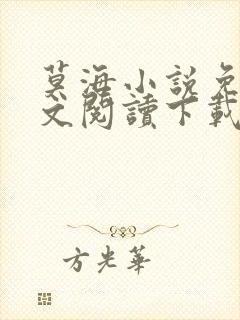 莫海小說免
文閱讀下載
方光華